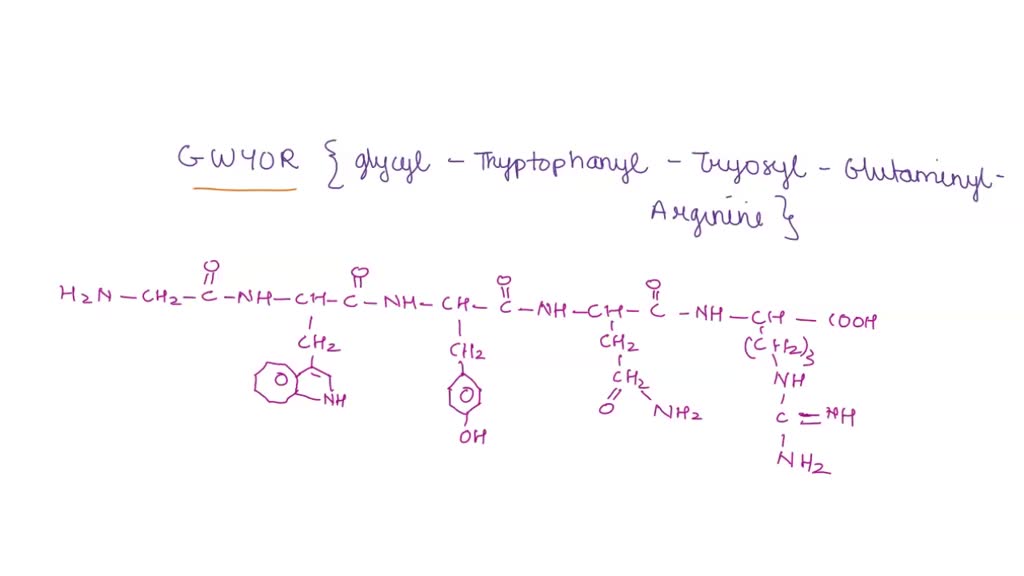 GWYOR { glycyl - Thyptophanyl - Tryosyl - Glutaminyl-
Arginine }
H2N - CH2 - C - NH - CH - C - NH - CH - C - NH - CH - C - NH - CH - COOH
O O O O
CH2 CH2 CH2 (CH2)3
O NH O CH2 NH
O NH2 C = NH
OH NH2